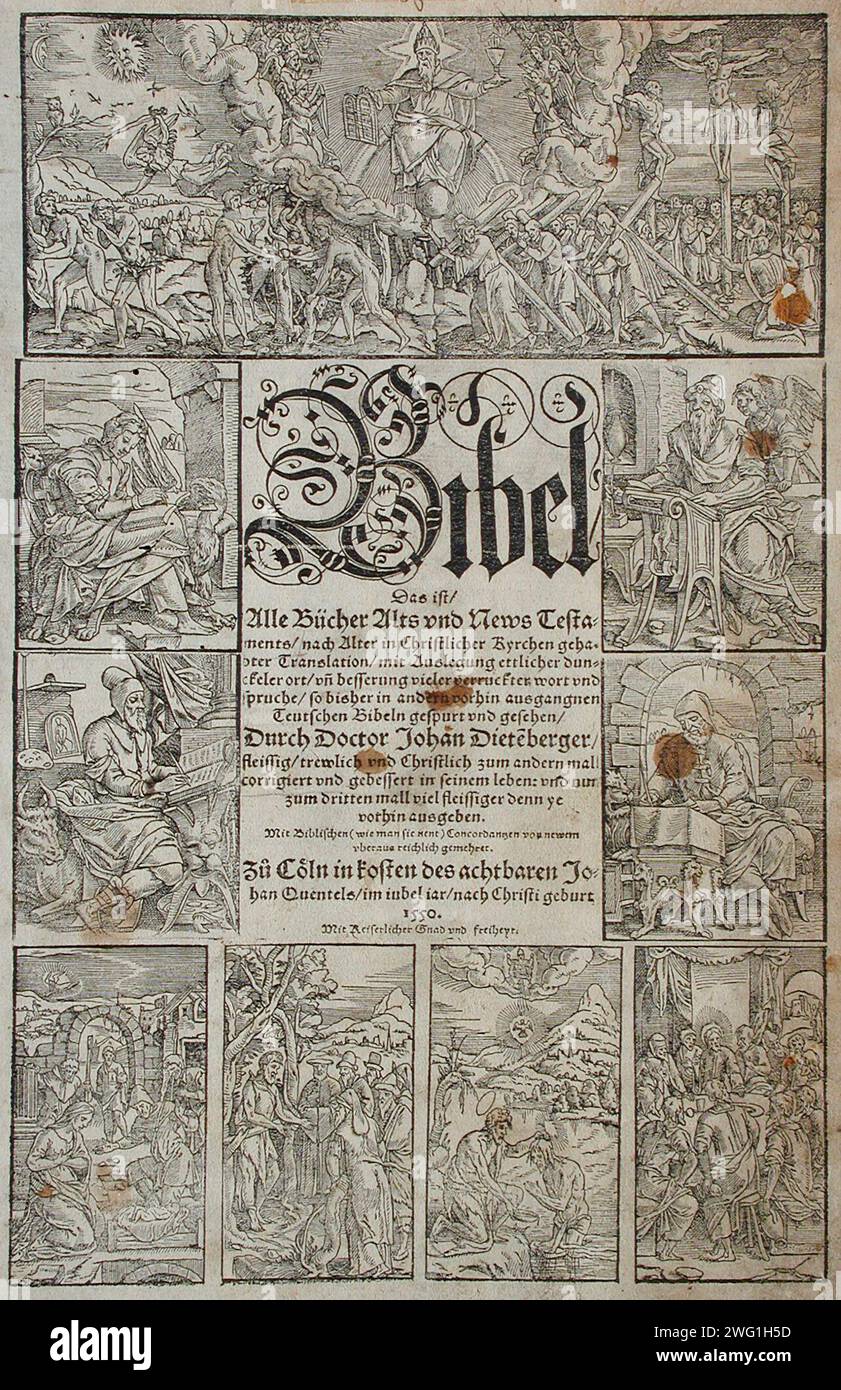 Bibel
Das ist/
Alle Bücher Alts vnd News Testa-
ments/ nach Alter in Christlicher Kyrchen geha-
bter Translation/ mit Auslegung ettlicher dun-
ckeler ort/ vñ besserung vieler verruckter wort vnd
spruche/ so bisher in andern vorhin ausgangnen
Teutschen Bibeln gespurt vnd gesehen/
Durch Doctor Johan Dietẽberger/
fleissig/ trewlich vnd Christlich zum andern mal
corrigiert vnd gebessert in seinem leben: vnd nun
zum dritten mall viel fleissiger denn ye
vorhin ausgeben.
Mit Biblischen (wie man sie nent) Concordantzen von newem
vberaus reichlich gemehret.
Zů Cöln in kosten des achtbaren Jo-
han Quentels/ im iubel iar/ nach Christi geburt
1550.
Mit Keiserlicher Gnad vnd freiheyt.
alamy
Image ID: 2WG1H5D
www.alamy.com